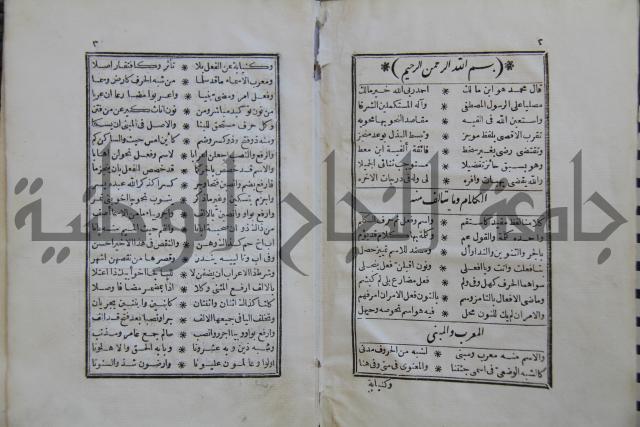 ٢
بسم الله الرحمن الرحيم
قال محمد هو ابن مالك * احمد ربى الله خير مالك
مصليا على الرسول المصطفى * وآله المستكملين الشرفا
واستعين الله فى الفيه * مقاصد النحو بها محويه
تقرب الاقصى بلفظ موجز * وتبسط البذل بوعد منجز
وتقتضى رضى بغير سخط * فائقة الفية ابن معط
وهو بسبق حائز تفضيلا * مستوجب ثنائى الجميلا
والله يقضى بهبات وافره * لى وله فى درجات الاخره
الكلام وما يتألف منه
كلامنا لفظ مفيد كاستقم * واسم وفعل ثم حرف الكلم
واحده كلمة والقول عم * وكلمة بها كلام قد يؤم
بالجر والتنوين والندا وال * ومسند للاسم تمييز حصل
بتا فعلت واتت ويا افعلى * ونون اقبلن فعل ينجلى
سواهما الحرف كهل وفى ولم * فعل مضارع يلى لم كيشم
وماضى الافعال بالتا مز وسم * بالنون فعل الامر ان امر فهم
والامر ان لم يك للنون محل * فيه هو اسم نحو صه وحيهل
المعرب والمبنى
والاسم منه معرب ومبنى * لشبه من الحروف مدنى
كالشبه الوضعى فى اسمى جئتنا * والمعنوى فى متى وفى هنا
وكنيابة
٣
وكنيابة عن الفعل بلا * تأثر وكافتقار اصلا
ومعرب الاسماء ما قد سلما * من شبه الحرف كارض وسما
وفعل امر ومضى بنيا * واعربوا مضارعا ان عريا
من نون توكيد مباشر ومن * نون اناث كيرعن من فتن
وكل حرف مستحق للبنا * والاصل فى المبنى ان يسكنا
ومنه ذو فتح وذو كسر وضم * كاين امس حيث والساكن كم
والرفع والنصب اجعلن اعرابا * لاسم وفعل نحو لن اهابا
والاسم قد خصص بالجر كما * قد خصص الفعل بان ينجزما
فارفع بضم وانصبن فتحا وجر * كسرا كذكر الله عبده يسر
وارفع بواو وانصبن بالالف
اب اخ حم كذاك وهن * والنقص فى هذا الاخير احسن
وفى اب وتالييه يندر * وقصرها من نقصهن اشهر
وشرط ذا الاعراب ان يضفن لا * لليا كجا اخو ابيك ذا اعتلا
بالالف ارفع المثنى وكلا * اذا بمضمر مضافا وصلا
كلتا كذاك اثنان واثنتان * كابنين وابنتين يجريان
وتخلف اليا فى جميعها الالف * جرا ونصبا بعد فتح قد الف
وارفع بواو وبيا اجرر وانصب * سالم جمع عامر ومذنب
وشبه ذين وبه عشرونا * وبابه الحق والاهلونا
اولو وعالمون عليونا * وارضون شذ والسنونا
جامعة النجاح الوطنية